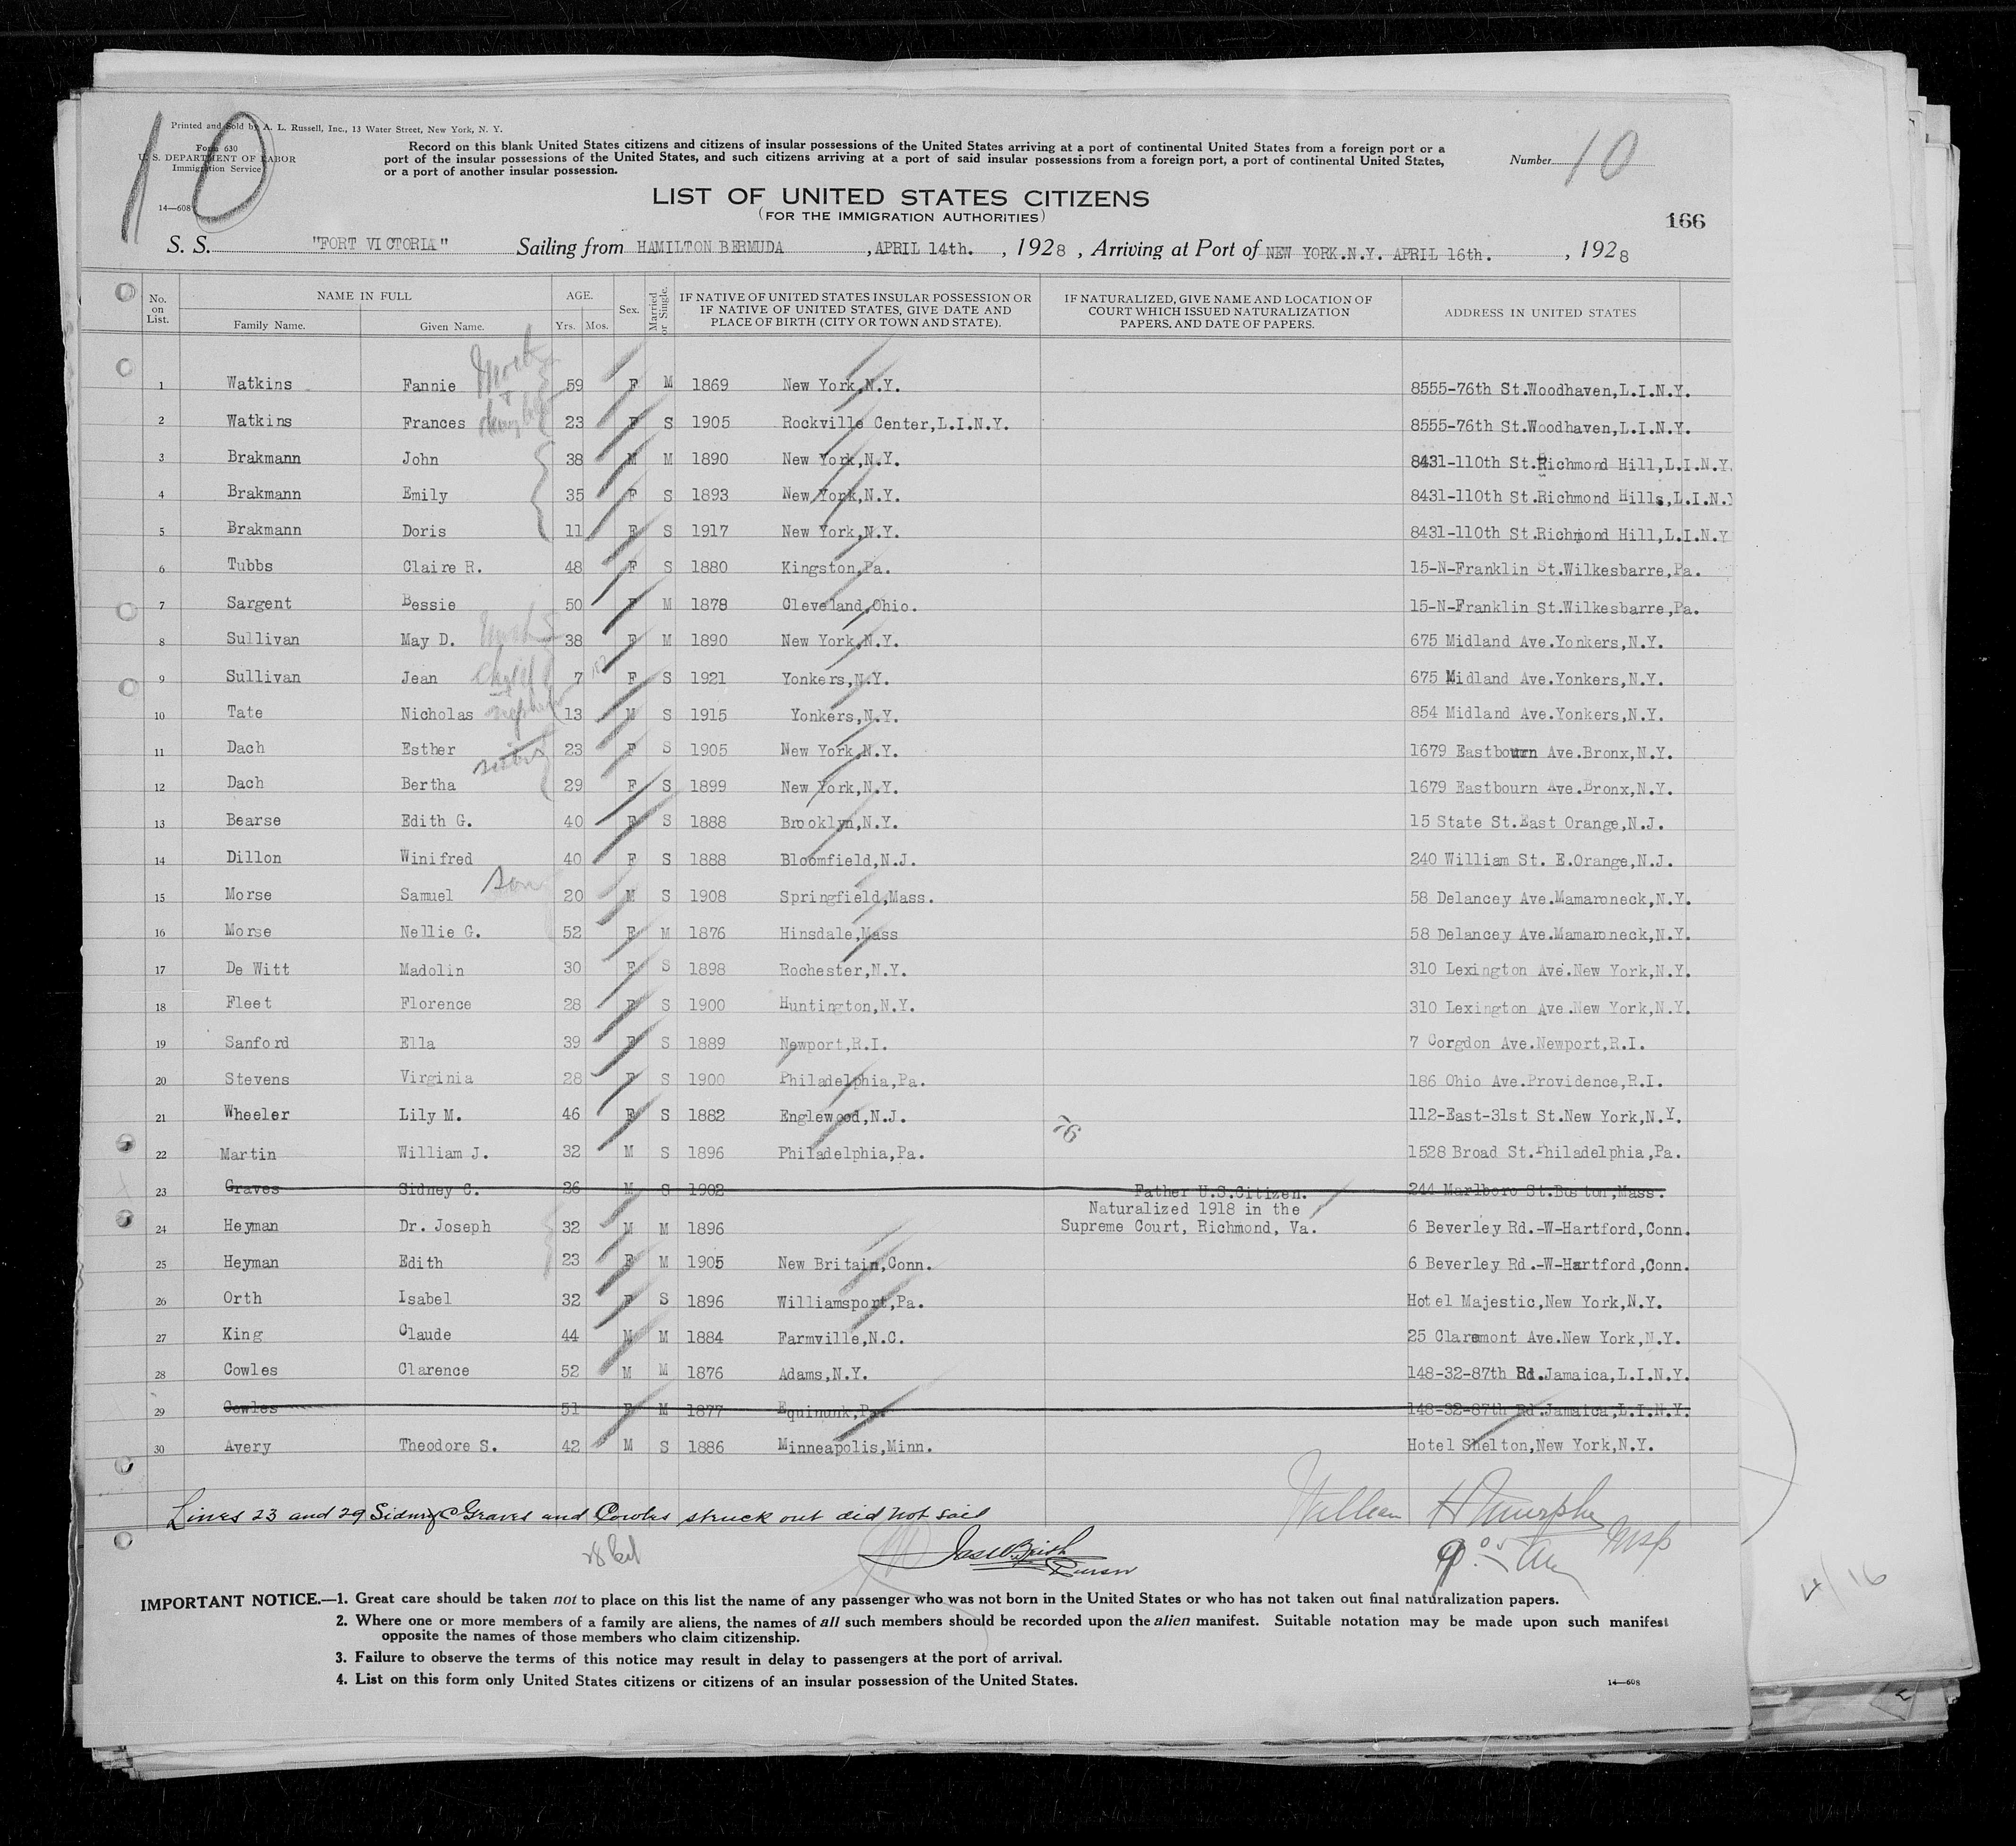 10
Printed and Sold by A. L. Russell, Inc., 13 Water Street, New York, N. Y.
Form 630
U. S. DEPARTMENT OF LABOR
Immigration Service
14—608
Record on this blank United States citizens and citizens of insular possessions of the United States arriving at a port of continental United States from a foreign port or a
port of the insular possessions of the United States, and such citizens arriving at a port of said insular possessions from a foreign port, a port of continental United States,
or a port of another insular possession.
Number 10
LIST OF UNITED STATES CITIZENS
(FOR THE IMMIGRATION AUTHORITIES)
166
S. S. "FORT VICTORIA" Sailing from HAMILTON BERMUDA , APRIL 14th. , 1928 , Arriving at Port of NEW YORK.N.Y. APRIL 16th. , 1928
No. on List. NAME IN FULL Family Name. Given Name. AGE. Yrs. Mos. Sex. Married or Single. IF NATIVE OF UNITED STATES INSULAR POSSESSION OR IF NATIVE OF UNITED STATES, GIVE DATE AND PLACE OF BIRTH (CITY OR TOWN AND STATE). IF NATURALIZED, GIVE NAME AND LOCATION OF COURT WHICH ISSUED NATURALIZATION PAPERS, AND DATE OF PAPERS. ADDRESS IN UNITED STATES
1 Watkins Fannie 59 F M 1869 New York,N.Y. 8555-76th St.Woodhaven,L.I.N.Y.
2 Watkins Frances 23 F S 1905 Rockville Center,L.I.N.Y. 8555-76th St.Woodhaven,L.I.N.Y.
3 Brakmann John 38 M M 1890 New York,N.Y. 8431-110th St.Richmond Hill,L.I.N.Y.
4 Brakmann Emily 35 F S 1893 New York,N.Y. 8431-110th St.Richmond Hills,L.I.N.Y
5 Brakmann Doris 11 F S 1917 New York,N.Y. 8431-110th St.Richmond Hill,L.I.N.Y
6 Tubbs Claire R. 48 F S 1880 Kingston,Pa. 15-N-Franklin St.Wilkesbarre,Pa.
7 Sargent Bessie 50 F M 1878 Cleveland,Ohio. 15-N-Franklin St.Wilkesbarre,Pa.
8 Sullivan May D. 38 F M 1890 New York,N.Y. 675 Midland Ave.Yonkers,N.Y.
9 Sullivan Jean child 7 F S 1921 Yonkers,N.Y. 675 Midland Ave.Yonkers,N.Y.
10 Tate Nicholas nephew 13 M S 1915 Yonkers,N.Y. 854 Midland Ave.Yonkers,N.Y.
11 Dach Esther sisters 23 F S 1905 New York,N.Y. 1679 Eastbourn Ave.Bronx,N.Y.
12 Dach Bertha 29 F S 1899 New York,N.Y. 1679 Eastbourn Ave.Bronx,N.Y.
13 Bearse Edith G. 40 F S 1888 Brooklyn,N.Y. 15 State St.East Orange,N.J.
14 Dillon Winifred 40 F S 1888 Bloomfield,N.J. 240 William St. E.Orange,N.J.
15 Morse Samuel son 20 M S 1908 Springfield,Mass. 58 Delancey Ave.Mamaroneck,N.Y.
16 Morse Nellie G. 52 F M 1876 Hinsdale,Mass 58 Delancey Ave.Mamaroneck,N.Y.
17 De Witt Madolin 30 F S 1898 Rochester,N.Y. 310 Lexington Ave.New York,N.Y.
18 Fleet Florence 28 F S 1900 Huntington,N.Y. 310 Lexington Ave.New York,N.Y.
19 Sanford Ella 39 F S 1889 Newport,R.I. 7 Corgdon Ave.Newport,R.I.
20 Stevens Virginia 28 F S 1900 Philadelphia,Pa. 186 Ohio Ave.Providence,R.I.
21 Wheeler Lily M. 46 F S 1882 Englewood,N.J. 112-East-31st St.New York,N.Y.
22 Martin William J. 32 M S 1896 Philadelphia,Pa. 76 1528 Broad St.Philadelphia,Pa.
23 Graves Sidney C. 26 M S 1902 Father U.S.Citizen. 244 Marlboro St.Boston,Mass.
24 Heyman Dr. Joseph 32 M M 1896 Naturalized 1918 in the Supreme Court, Richmond, Va. 6 Beverley Rd.-W-Hartford,Conn.
25 Heyman Edith 23 F M 1905 New Britain,Conn. 6 Beverley Rd.-W-Hartford,Conn.
26 Orth Isabel 32 F S 1896 Williamsport,Pa. Hotel Majestic,New York,N.Y.
27 King Claude 44 M M 1884 Farmville,N.C. 25 Claremont Ave.New York,N.Y.
28 Cowles Clarence 52 M M 1876 Adams,N.Y. 148-32-87th Rd.Jamaica,L.I.N.Y.
29 Cowles 51 F M 1877 Equinunk,Pa. 148-32-87th Rd.Jamaica,L.I.N.Y.
30 Avery Theodore S. 42 M S 1886 Minneapolis,Minn. Hotel Shelton,New York,N.Y.
Lines 23 and 29 Sidney C Graves and Cowles struck out did not sail
William H Murphy
Purser
IMPORTANT NOTICE.—1. Great care should be taken not to place on this list the name of any passenger who was not born in the United States or who has not taken out final naturalization papers.
2. Where one or more members of a family are aliens, the names of all such members should be recorded upon the alien manifest. Suitable notation may be made upon such manifest
opposite the names of those members who claim citizenship.
3. Failure to observe the terms of this notice may result in delay to passengers at the port of arrival.
4. List on this form only United States citizens or citizens of an insular possession of the United States.
14—608
4/16